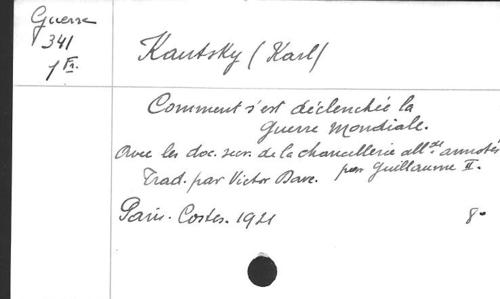 Guerre
341
1 Fr.
Kautsky (Karl)
Comment s'est déclenchée la
Guerre Mondiale.
Avec les doc. secr. de la chancellerie allde annotés
par Guillaume II.
Trad. par Victor Dave.
Paris. Costes. 1921
8°